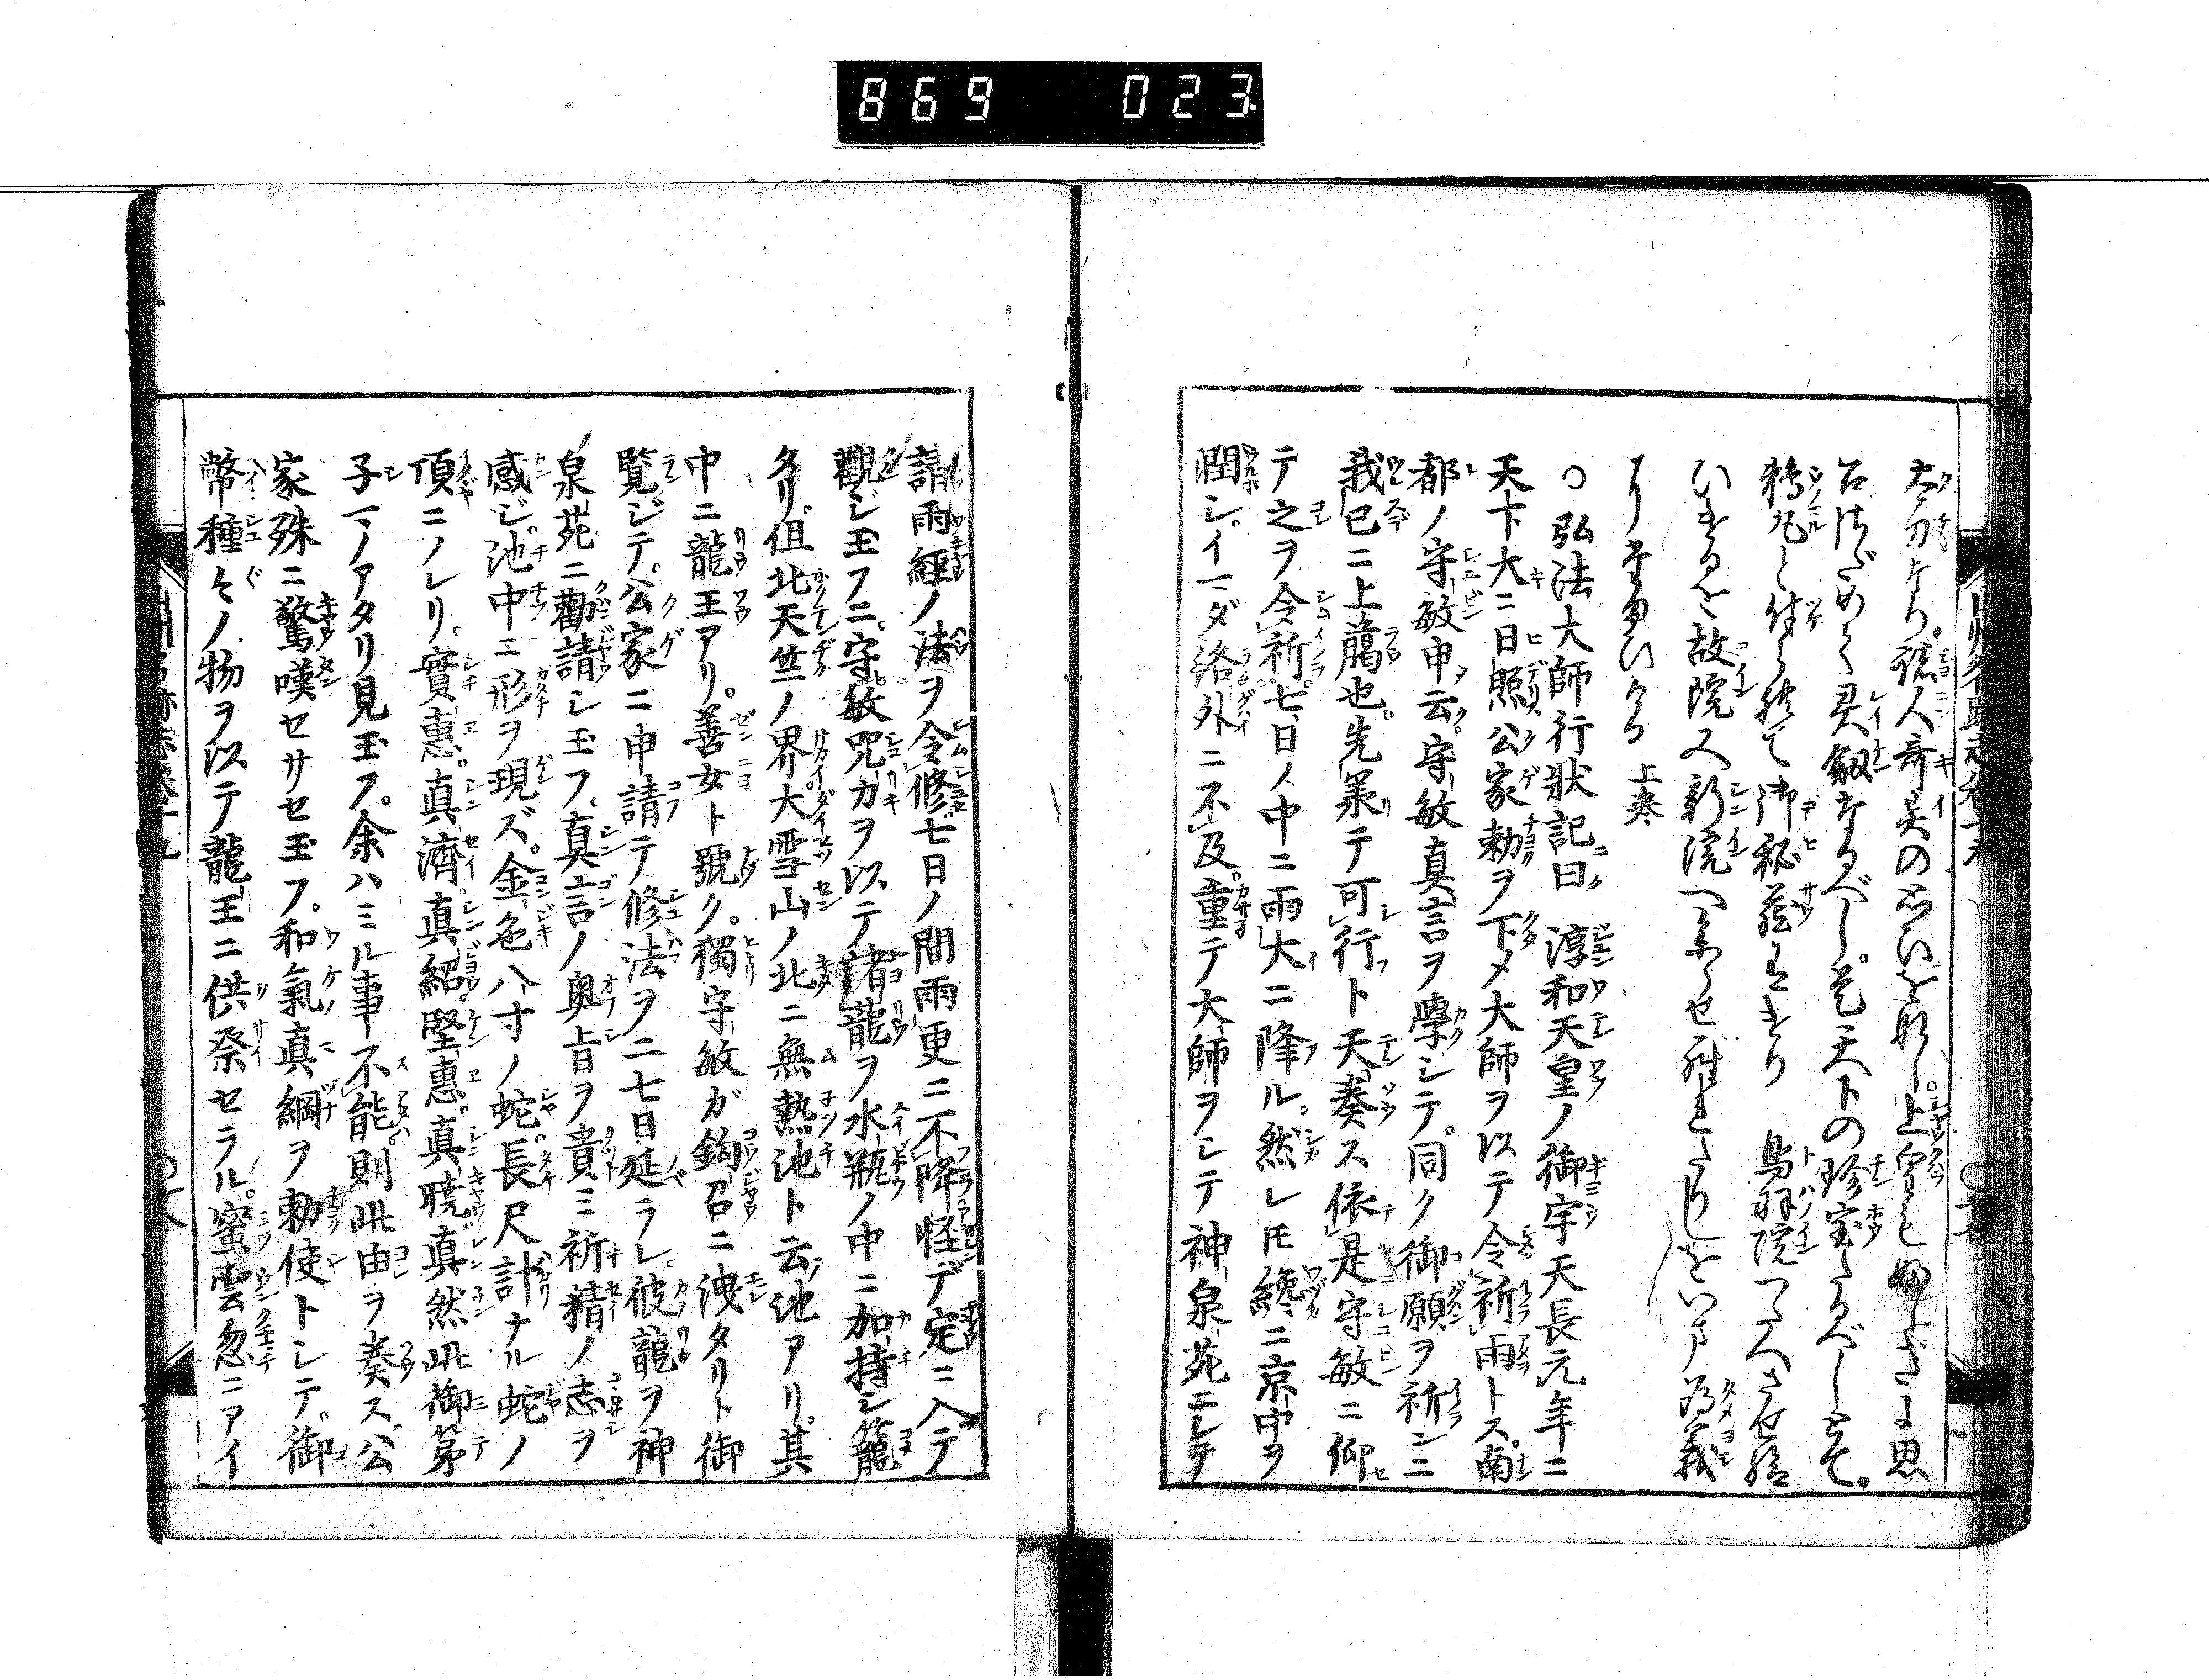 869 023
太刀なり。諸人奇異の思いを成し。上皇も
石 ためく灵劔なるべし。是天下の珍宝たるべしとて。
鵜丸と付られて御秘蔵有けり 鳥羽院つたへさせ給
いけるを故院又新院へ参らせ 為義
たまひける 上巻
○弘法大師行狀記曰 淳和天皇ノ御宇天長元年ニ
天下大ニ日照公家勅ヲ下メ大師ヲ以テ令祈雨トス。南
都ノ守敏申云。守敏真言ヲ學シテ。同ク御願ヲ祈ンニ
我已ニ上﨟也。先羕テ可行ト天奏ス依是守敏ニ仰
テ之ヲ令祈。七日ノ中ニ雨大ニ降ル。然レ𪜈纔ニ京中ヲ
潤シ。イマダ洛外ニ不及重テ大師ヲシテ神泉苑ニシテ
請雨經ノ法ヲ令修七日ノ間雨更ニ不降怪デ定ニ入テ
觀ジ玉フニ。守敏咒力ヲ以テ諸龍ヲ水瓶ノ中ニ加持シ籠
タリ。但北天竺ノ界大雪山ノ北ニ無熱池ト云池アリ。其
中ニ龍王アリ。善女ト號ク。獨守敏ガ鈎召ニ洩タリト御
覧ジテ。公家ニ申請テ修法ヲ二七日延ラレ彼龍ヲ神
泉苑ニ勸請シ玉フ。真言ノ奥旨ヲ貴ミ祈精ノ志ヲ
感ジ。池中ニ形ヲ現ズ。金色八寸ノ蛇。長尺計ナル蛇ノ
頂ニノレリ。實惠。真濟。真紹。堅惠。真曉真然此御第
子マノアタリ見玉フ。余ハミル事不能。則此由ヲ奏ス。公
家殊ニ驚嘆セサセ玉フ。和氣真綱ヲ勅使トシテ。御
幣種々ノ物ヲ以テ龍王ニ供祭セラル。蜜雲忽ニアイ